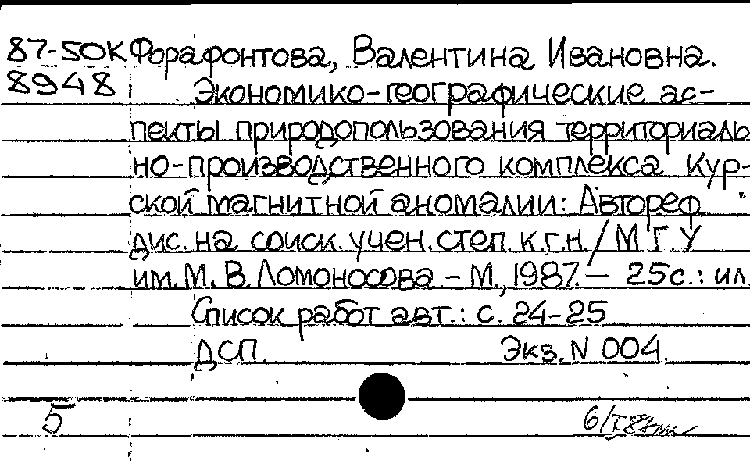 87-50К Форафонтова, Валентина Ивановна.
8948 Экономико-географические ас-
пекты природопользования территориаль
но-производственного комплекса Кур-
ской магнитной аномалии: Автореф
дис. на соиск. учен. степ. к.г.н. / МГУ
им. М. В. Ломоносова. - М., 1987. - 25с.: ил.
Список работ авт.: с. 24-25
ДСП. Экз. N 004.
5